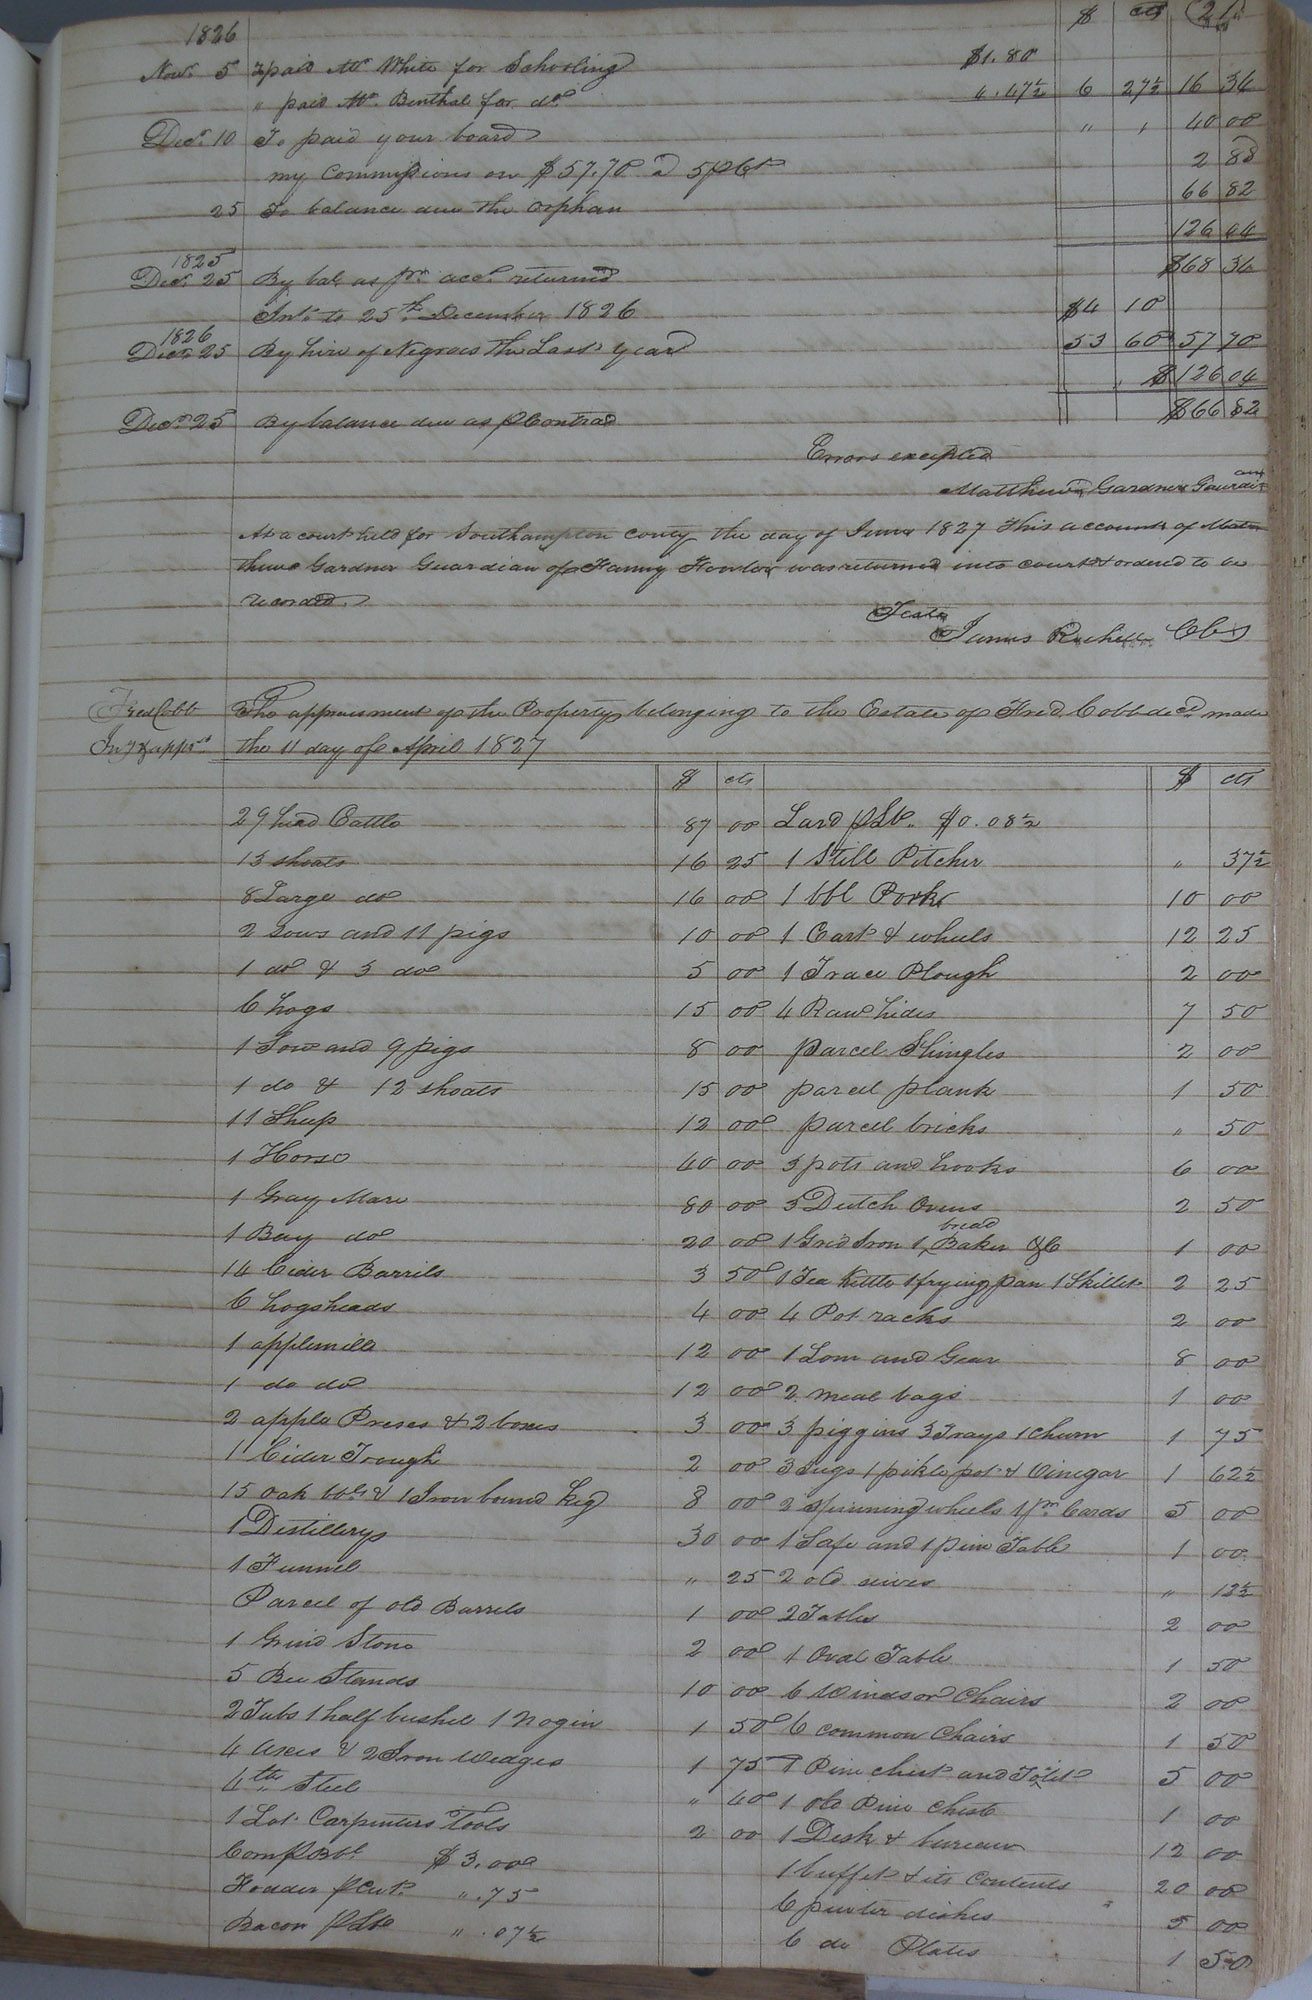 $ cts 21
1826
Novr. 5 To paid Mr White for Schooling $1.80
" paid Mr. Binthal for do 4.47½ 6 27½ 16 34
Decr. 10 To paid your board " , 40 00
my Commissions on $57.70 @ 5 pCt 2 88
25 To balance due the orphan 66 82
126 04
1825
Decr. 25 By bale as pr. acct. returned $68 34
Int. to 25th December 1826 $4 10
1826
Decr. 25 By hire of Negroes the Last year 53 60 57 70
$126 04
Decr. 25 By balance due as p Contrad $66 82
Errors excepted
Matthew Gardner Gaurdian
At a court held for Southampton couty the day of June 1827 This account of Mat
thew Gardner Guardian of Fanny was returned into court & ordered to be
recorded.
Teste
James Rochelle Clk
Fred Cobb
Invy & apprt.
The appraisment of the Property belonging to the Estate of Fred. Cobb decd. made
the 11 day of April 1827
$ cts $ cts
29 head Cattle 87 00 Lard p Lb. $0.08½
13 shoats 16 25 1 Still Pitcher " 37½
8 Large do 16 00 1 bbl Pork 10 00
2 Sows and 11 pigs 10 00 1 Cart & wheels 12 25
1 do & 3 do 5 00 1 Trace Plough 2 00
6 hogs 15 00 4 Raw hides 7 50
1 Sow and 9 pigs 8 00 parcel Shingles 2 00
1 do & 12 shoats 15 00 parcel plank 1 50
11 Sheep 12 00 parcel bricks " 50
1 Horse 40 00 3 pots and hooks 6 00
1 Gray Mare 80 00 3 Dutch Ovens 2 50
1 Bay do 20 00 1 Grid Iron 1 bread Baker &C 1 00
14 Cider Barrils 3 50 1 Tea Kettle 1 frying pan 1 Skillet 2 25
6 hogsheads 4 00 4 Pot racks 2 00
1 applemill 12 00 1 Lom and Gear 8 00
1 do do 12 00 2 meal bags 1 00
2 apple Preses & 2 boxes 3 00 3 piggins 3 Trays 1 churn 1 75
1 Cider Trough 2 00 3 Jugs 1 pikle pot & Vinegar 1 62½
15 oak bbls & 1 Iron bound Keg 8 00 2 spinning wheels 1 pr. Cards 5 00
1 Distillery 30 00 1 Safe and 1 pine Table 1 00
1 Funnel " 25 2 old sives " 12½
Parcel of old Barrels 1 00 2 Tables 2 00
1 Grind Stone 2 00 1 Oval Table 1 50
5 Bee Stands 10 00 6 Windsor Chairs 2 00
2 Tubs 1 half bushel 1 nogin 1 50 6 common Chairs 1 50
4 axes & 2 Iron Wedges 1 75 1 Pine chest and 5 00
4 lb Steel " 40 1 old Pine Chest 1 00
1 Lot Carpinters Tools 2 00 1 Desk & bureau 12 00
Corn p Bbl $3.00 1 buffet & its Contents 20 00
Fodder p Cwt. ".75 6 pewter dishes 5 00
Bacon p Lb ".07½ 6 do Plates 1 50